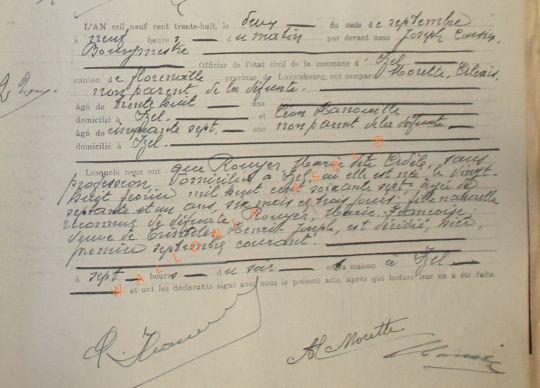 L'AN mil neuf cent trente-huit, le deux du mois de septembre
à neuf heures du matin par devant nous Joseph
Bourgmestre
Officier de l'état civil de la commune d'Izel
canton de Florenville province de Luxembourg, ont comparu Morette,
non parent de la défunte.
âgé de trente huit ans
domicilié à Izel. et Léon
âgé de cinquante sept ans non parent de la défunte
domicilié à Izel.
Lesquels nous ont que Rouyer, Marie, sans
profession, domiciliée à Izel, où elle est née le vingt
huit février mil huit cent soixante sept âgée de
septante et un ans six mois et jours, fille naturelle
reconnue de défunte Rouyer, Marie, Françoise
veuve de Henri Joseph, est décédée, hier,
premier septembre courant.
à sept heures du soir en sa maison à Izel
et ont les déclarants signé avec nous le présent acte, après que lecture leur en a été faite.
Al Morette